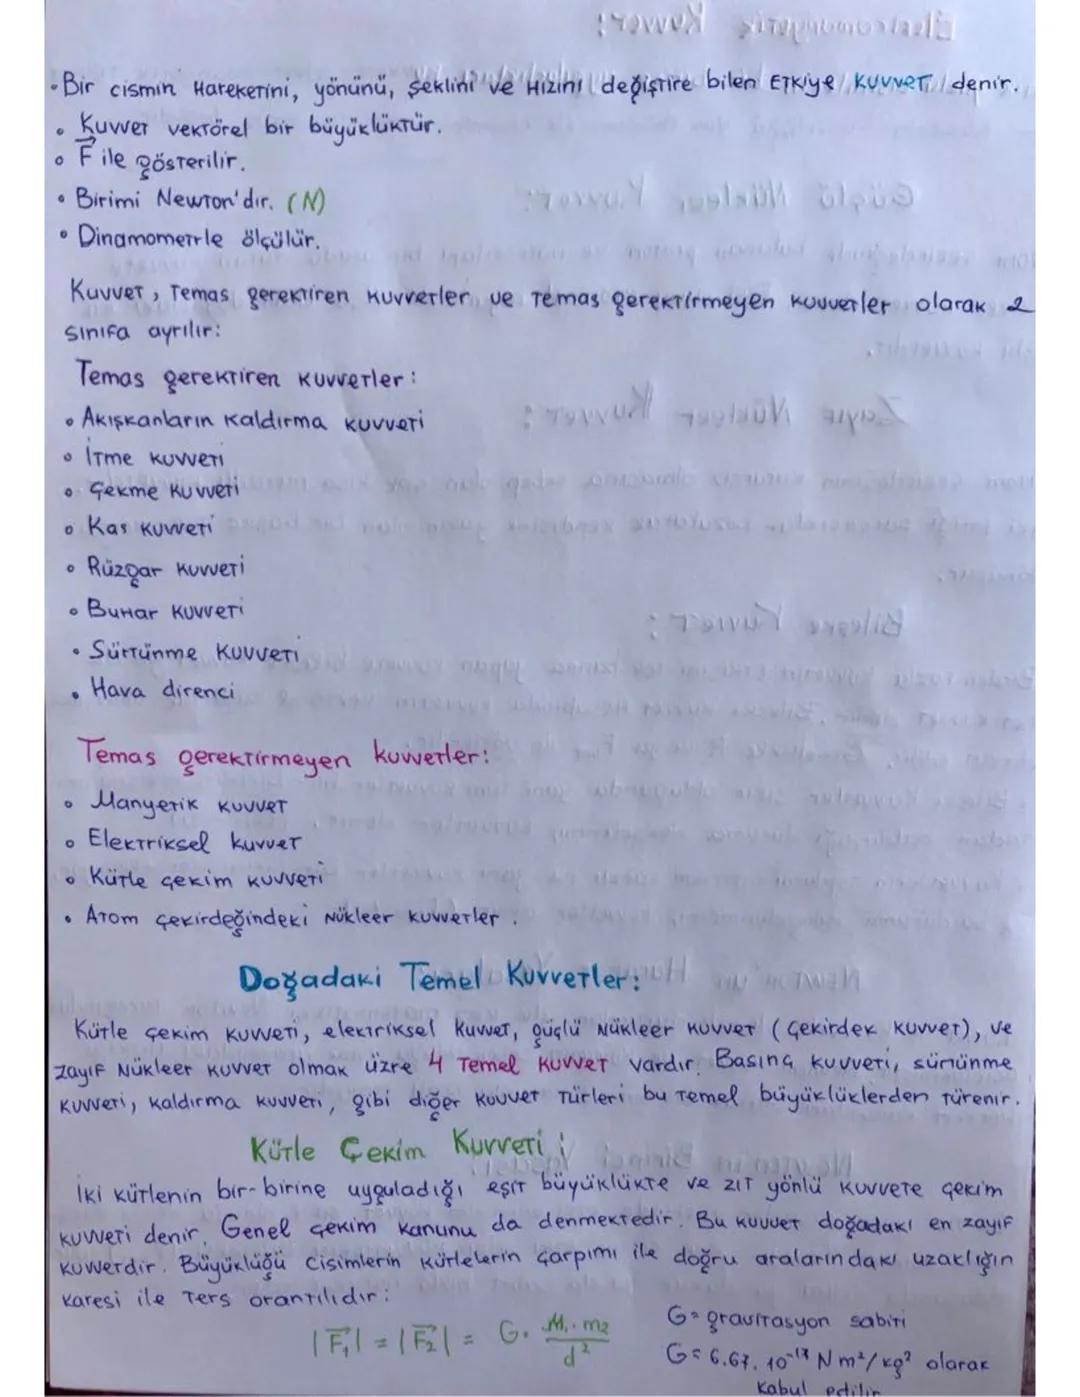 • Bir cismin Hareketini, yönünü, şeklini ve Hızını değiştire bilen Etkiye kuvvet denir.
• Kuvvet vektörel bir büyüklüktür.
• F ile gösterilir.
• Birimi Newton'dır. (N)
• Dinamometrle ölçülür.
Kuvvet, Temas gerektiren kuvvetler ve temas gerektirmeyen kuvvetler olarak 2
sınıfa ayrılır:
Temas gerektiren kuvvetler:
• Akışkanların kaldırma kuvveti
• İtme kuvveti
• Çekme kuvveti
• Kas kuvveti
• Rüzgar kuvveti
• Buhar kuvveti
• Sürtünme kuvveti
• Hava direnci
Temas gerektirmeyen kuvvetler:
• Manyetik kuvvet
• Elektriksel kuvvet
• Kütle çekim kuvveti
• Atom çekirdeğindeki Nükleer kuvvetler.
Doğadaki Temel Kuvvetler:
Kütle çekim kuvveti, elektriksel kuvvet, güçlü Nükleer kuvvet (Çekirdek kuvvet), ve
zayıf Nükleer kuvvet olmak üzre 4 Temel kuvvet vardır. Basınç kuvveti, sürtünme
kuvveti, kaldırma kuvveti, gibi diğer kuvvet Türleri bu temel büyüklüklerden türenir.
Kütle Çekim Kuvveti:
İki kütlenin bir-birine uyguladığı eşit büyüklükte ve zıt yönlü kuvvete çekim
kuvveti denir. Genel çekim kanunu da denmektedir. Bu kuvvet doğadaki en zayıf
kuvvetdir. Büyüklüğü cisimlerin kütlelerin çarpımı ile doğru aralarındaki uzaklığın
karesi ile ters orantılıdır:
|F₁| = |F₂| = G. M₁.m₂ / d²
G = gravitasyon sabiti
G = 6.67. Nm²/kg² olarak
kabul edilir